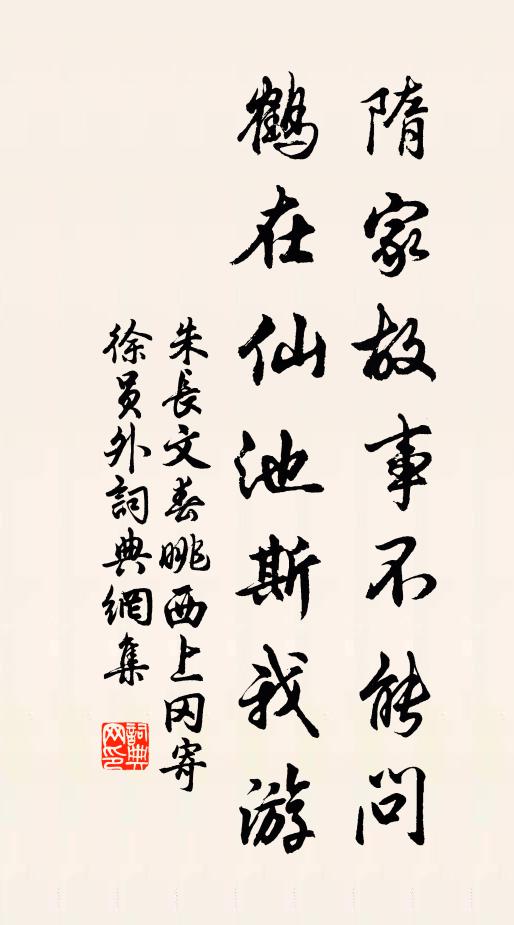 隋家故事不能问
鹤在仙池斯我游
朱長文春眺西上冈寄
徐员外詞典網集
詞典
网印